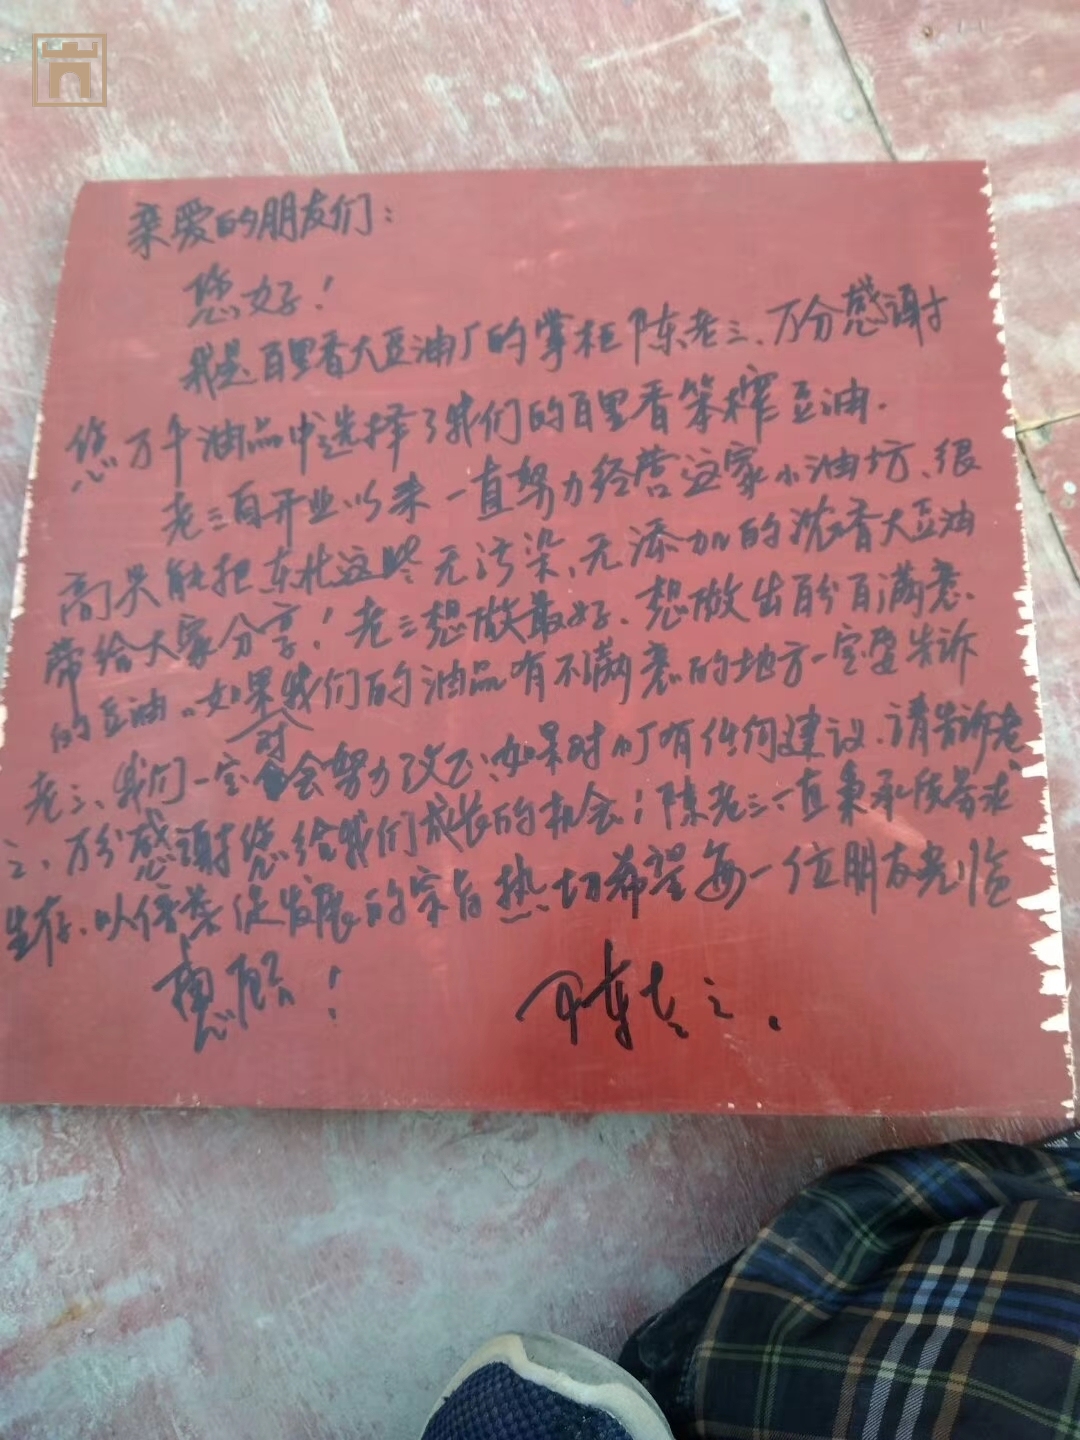 亲爱的朋友们：
您好！
我是百里香大豆油厂的掌柜陈老三、万分感谢
您万千油品中选择了我们的百里香笨榨豆油.
老三自开业以来一直努力经营这家小油坊、很
高兴能把东北这些无污染、无添加的浓香大豆油
带给大家分享！老三想做最好、想做出百分百满意、
的豆油。如果我们的油品有不满意的地方一定要告诉
老三、我们一定会努力改正；如果对
我们有任何建议、请告诉老
三、万分感谢您给我们成长的机会；陈老三一直秉承质量求
生存、以信誉促发展的宗旨热切希望每一位朋友光临
惠顾！ 陈老三.